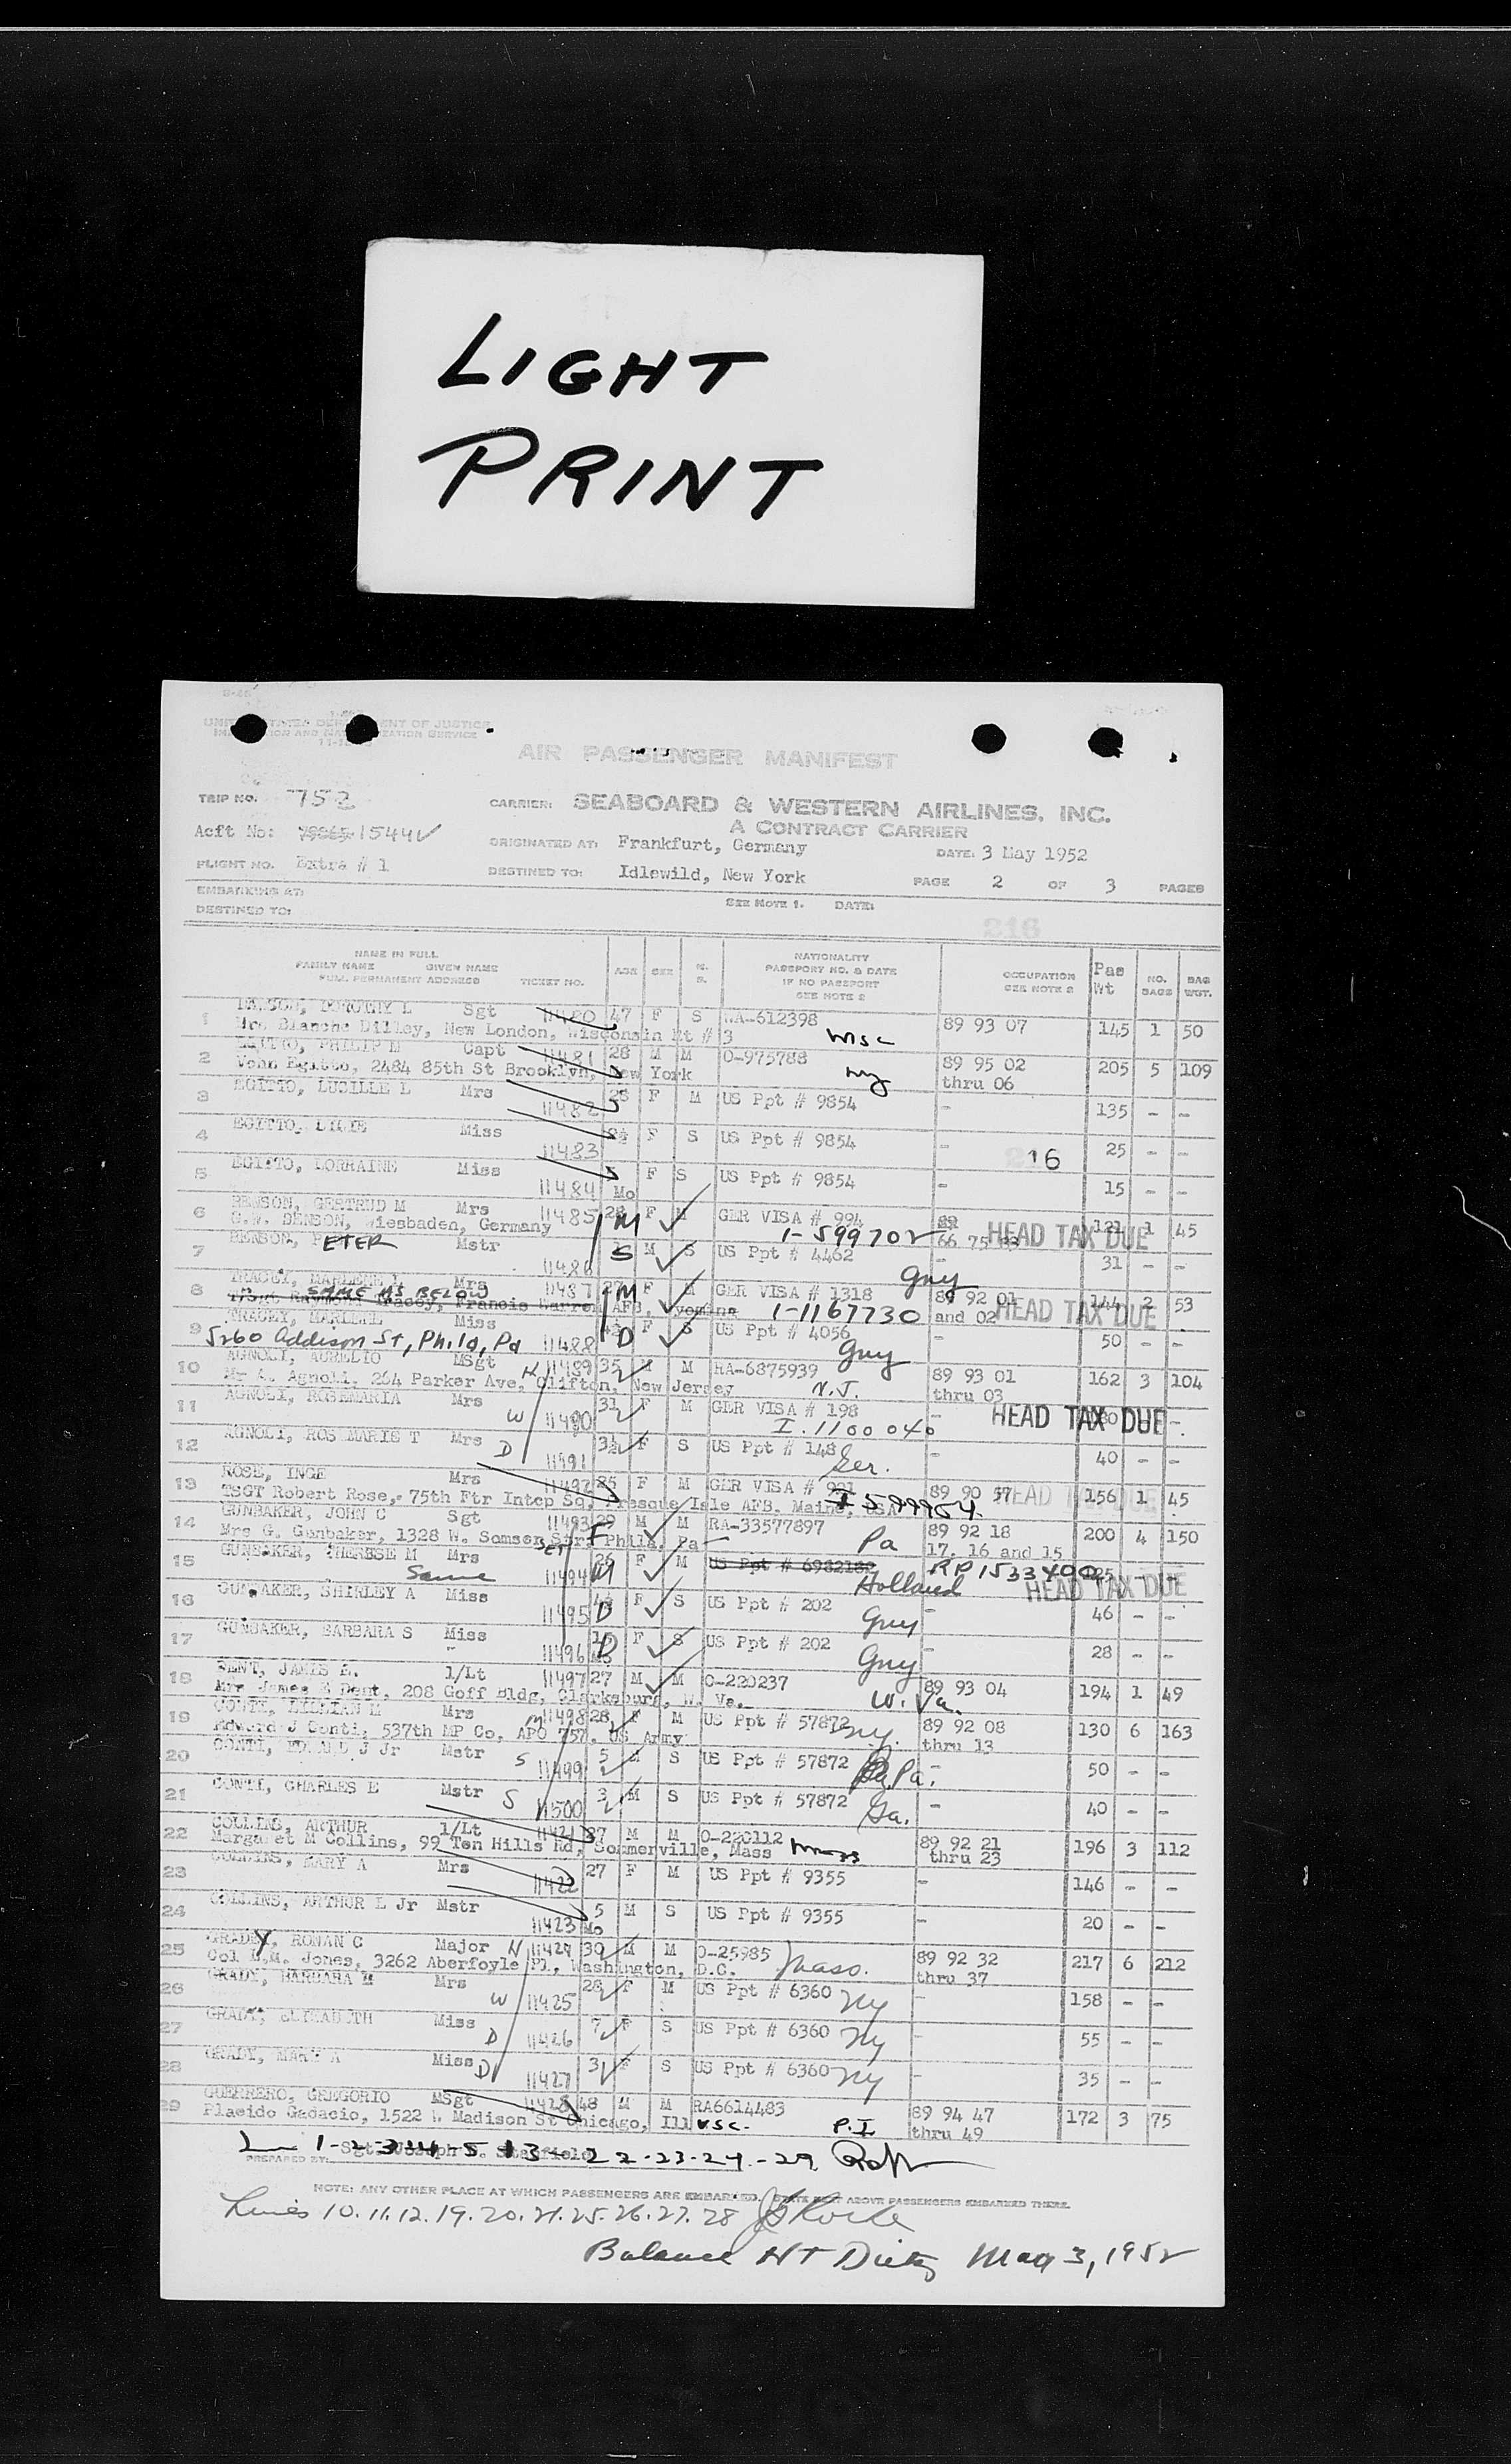 LIGHT
PRINT
UNITED STATES DEPARTMENT OF JUSTICE
IMMIGRATION AND NATURALIZATION SERVICE
AIR PASSENGER MANIFEST
TRIP NO. 752
CARRIER: SEABOARD & WESTERN AIRLINES, INC.
A CONTRACT CARRIER
Acft No: 1544V
ORIGINATED AT: Frankfurt, Germany DATE: 3 May 1952
FLIGHT NO. Extra # 1 DESTINED TO: Idlewild, New York PAGE 2 OF 3 PAGES
EMBARKING AT: SEE NOTE 1. DATE:
DESTINED TO:
216
NAME IN FULL
FAMILY NAME GIVEN NAME
FULL PERMANENT ADDRESS TICKET NO. AGE SEX M. S. NATIONALITY PASSPORT NO. & DATE IF NO PASSPORT SEE NOTE 2 OCCUPATION SEE NOTE 2 Pas Wt NO. BAGS BAG WGT.
1 DOROTHY L Sgt 11480 47 F S WA-612398 89 93 07 145 1 50
Mrs Blanche Dilley, New London, Wisconsin Rt # 3 Wisc
2 EGITTO, PHILIP M Capt 11481 28 M M O-975788 89 95 02 thru 06 205 5 109
Egitto, 2484 85th St Brooklyn, New York NY
3 EGITTO, LUCILLE L Mrs 11482 28 F M US Ppt # 9854 - 135 - -
4 EGITTO, Miss 11483 2½ F S US Ppt # 9854 - 25 - -
16
5 EGITTO, LORRAINE Miss 11484 Mo F S US Ppt # 9854 - 15 - -
6 BENSON, GERTRUD M Mrs 11485 28 M F M GER VISA # 994 66 75 121 1 45
G.W. BENSON, Wiesbaden, Germany 1-599702 HEAD TAX DUE
7 BENSON, PETER Mstr 11486 S M S US Ppt # 4462 - 31 - -
Gny
8 TRACEY, MARLENE Mrs 11487 27 M F M GER VISA # 1318 89 92 01 and 02 144 2 53
SAME AS BELOW
Raymond Tracey, Francis Warren AFB, Wyoming 1-1167730 HEAD TAX DUE
9 TRACEY, Miss 11488 4½ D F S US Ppt # 4056 - 50 - -
5260 Addison St, Phila, Pa Gny
10 AGNOLI, AURELIO MSgt H 11489 35 M M RA-6875939 89 93 01 thru 03 162 3 104
Mr A. Agnoli, 264 Parker Ave, Clifton, New Jersey N.J.
11 AGNOLI, ROSEMARIA Mrs W 11490 31 F M GER VISA # 198 - 130 - -
I.1100040 HEAD TAX DUE
12 AGNOLI, ROSEMARIE T Mrs D 11491 3½ F S US Ppt # 148 - 40 - -
Ger.
13 ROSE, INGE Mrs 11492 25 F M GER VISA # 991 89 90 57 156 1 45
TSGT Robert Rose, 75th Ftr Intcp Sq, Presque Isle AFB, Maine, USA I 599954 HEAD TAX DUE
14 GUNBAKER, JOHN C Sgt 11493 29 M M RA-33577897 89 92 18 17, 16 and 15 200 4 150
Mrs G. Gunbaker, 1328 W. Somser Str, Phila, Pa F Pa
15 GUNBAKER, THERESE M Mrs 11494 26 M F M US Ppt # 6982180 RP 1533400 125 - -
Same Holland HEAD TAX DUE
16 GUNBAKER, SHIRLEY A Miss 11495 D F S US Ppt # 202 - 46 - -
Gny
17 GUNBAKER, BARBARA S Miss 11496 15 Mo D F S US Ppt # 202 - 28 - -
Gny
18 DENT, JAMES E. 1/Lt 11497 27 M M O-220237 89 93 04 194 1 49
Mrs James E Dent, 208 Goff Bldg, Clarksburg, W. Va. W. Va.
19 CONTI, LILLIAN M Mrs M 11498 28 F M US Ppt # 57872 NY. 89 92 08 thru 13 130 6 163
Edward J Conti, 537th MP Co, APO 757, US Army
20 CONTI, EDWARD J Jr Mstr S 11499 5 M S US Ppt # 57872 Pa. - 50 - -
21 CONTI, CHARLES E Mstr S 11500 3 M S US Ppt # 57872 Ga. - 40 - -
22 COLLINS, ARTHUR 1/Lt 11421 27 M M O-220112 89 92 21 thru 23 196 3 112
Margaret M Collins, 99 Ten Hills Rd, Sommerville, Mass Mass
23 COLLINS, MARY A Mrs 11422 27 F M US Ppt # 9355 - 146 - -
24 COLLINS, ARTHUR L Jr Mstr 11423 5 Mo M S US Ppt # 9355 - 20 - -
25 GRADY, RONAN C Major H 11424 30 M M O-25985 Mass. 89 92 32 thru 37 217 6 212
Col Jones, 3262 Aberfoyle Pl, Washington, D.C.
26 GRADY, BARBARA M Mrs W 11425 28 F M US Ppt # 6360 NY - 158 - -
27 GRADY, ELIZABETH Miss D 11426 7 F S US Ppt # 6360 NY - 55 - -
28 GRADY, MARY A Miss D 11427 3 F S US Ppt # 6360 NY - 35 - -
29 GUERRERO, GREGORIO MSgt 11428 48 M M RA6614483 89 94 47 thru 49 172 3 75
Placido Gadacio, 1522 W. Madison St Chicago, Ill USC. P.I
1-2-3-4-5 13-22-23-24-29
PREPARED BY: Sgt. Joseph
NOTE: ANY OTHER PLACE AT WHICH PASSENGERS ARE EMBARKED, STATE NEXT ABOVE PASSENGERS EMBARKED THERE.
Lines 10.11.12.19.20.21.25.26.27.28
Balance HT Dietz May 3, 1952